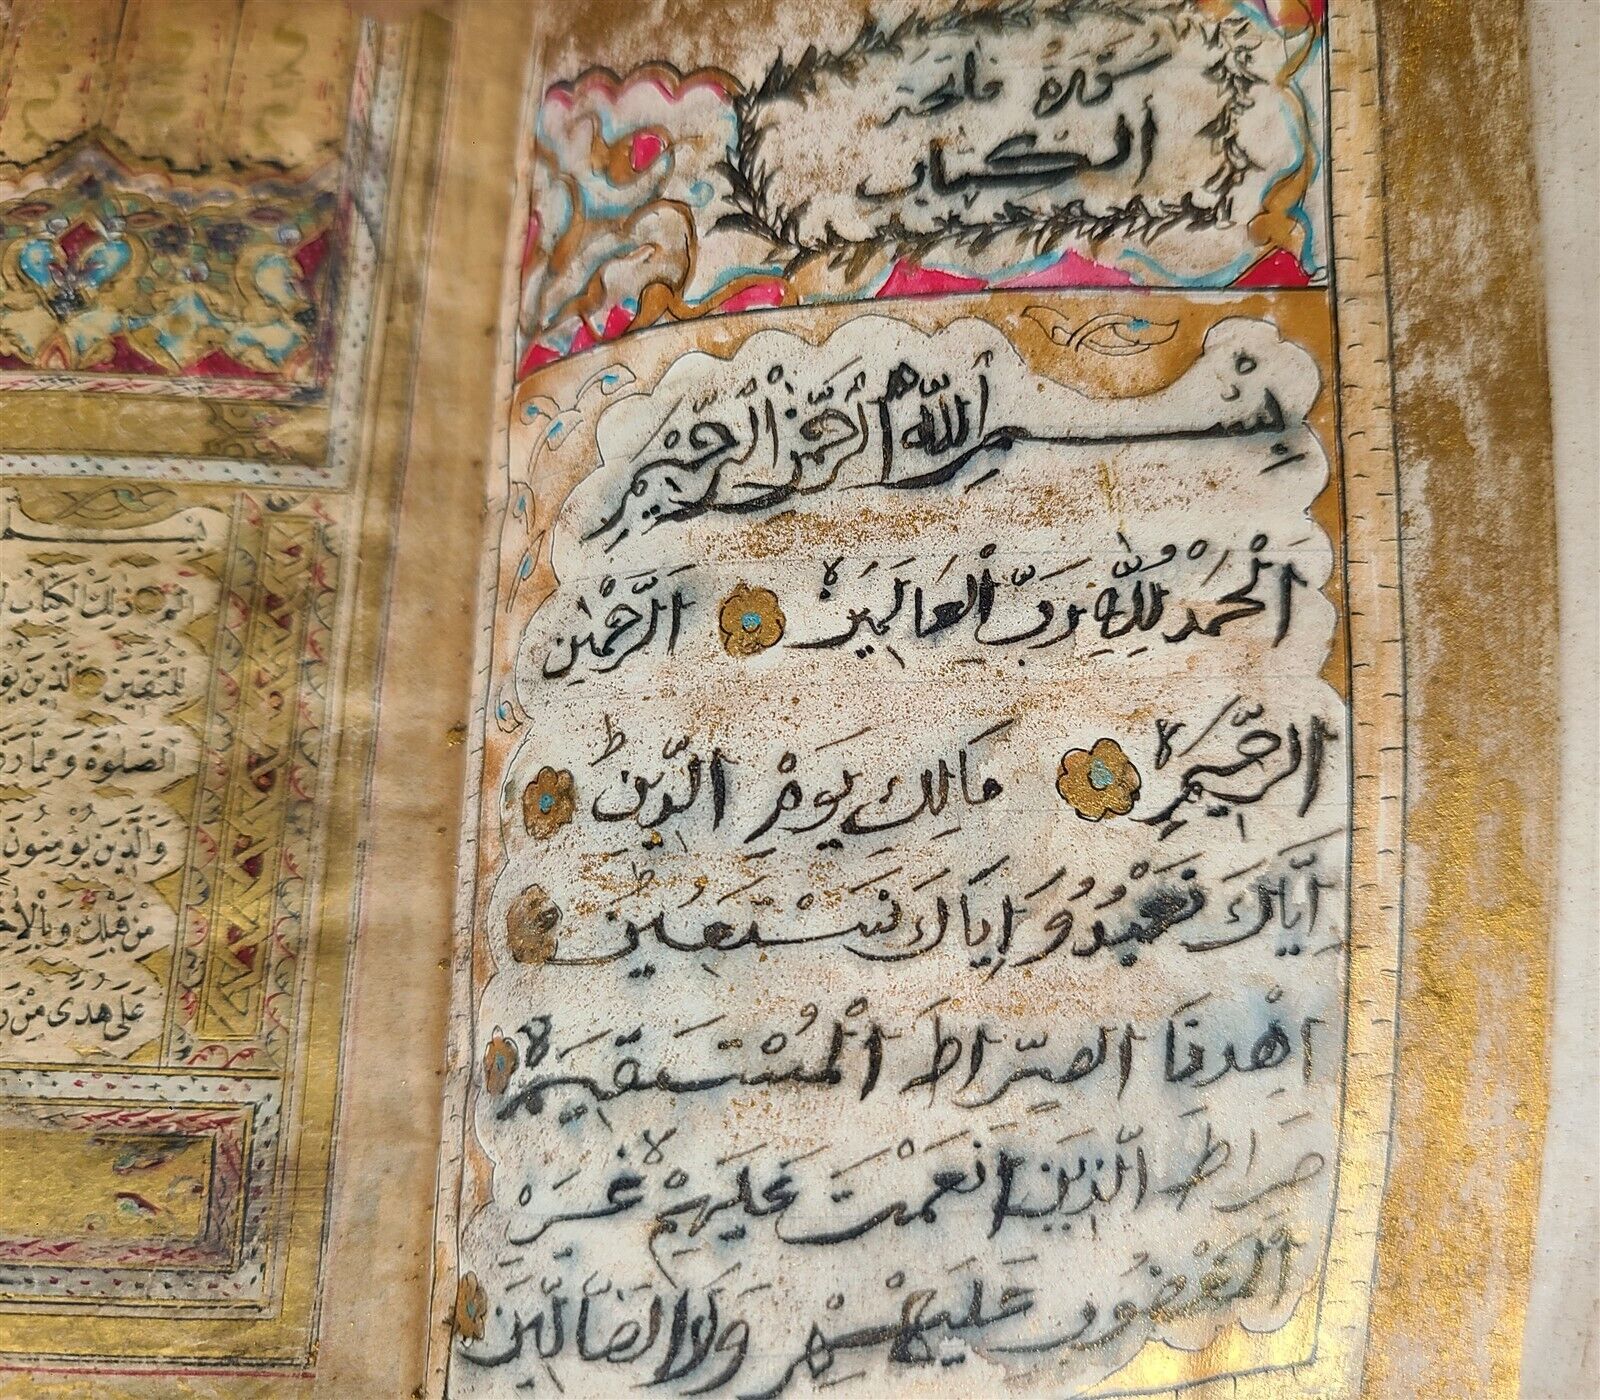 سورة فاتحة
ألكتاب
بِسْمِ اللَّهِ الرَّحْمٰنِ الرَّحِيمِ
اَلْحَمْدُ لِلَّهِ رَبِّ الْعَالَمِينَ لا اَلرَّحْمٰنِ
الرَّحِيمِ لا مَالِكِ يَوْمِ الدِّينِ ط
اِيَّاكَ نَعْبُدُ وَاِيَاكَ نَسْتَعِينُ ط
اِهْدِنَا الصِّرَاطَ الْمُسْتَقِيمَ لا
صِرَاطَ الَّذِينَ اَنْعَمْتَ عَلَيْهِمْ لا غَيْرِ
الْمَغْضُوبِ عَلَيْهِمْ وَلَا الضَّالِّينَ
بِسْم
الم ذٰلِكَ الْكِتَابُ
لِلْمُتَّقِينَ الَّذِينَ
الصَّلٰوةَ وَمِمَّا
وَالَّذِينَ يُؤْمِنُونَ
مِنْ قَبْلِكَ
عَلٰى هُدًى مِنْ